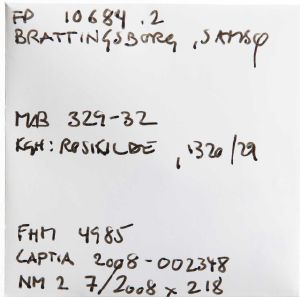 FP 10684.2
BRATTINGSBORG, SAMSØ
MAB 329-32
KGH: ROSKILDE, 1320/29
FHM 4985
CAPTIA 2008-002348
NM 2 7/2008 x 218